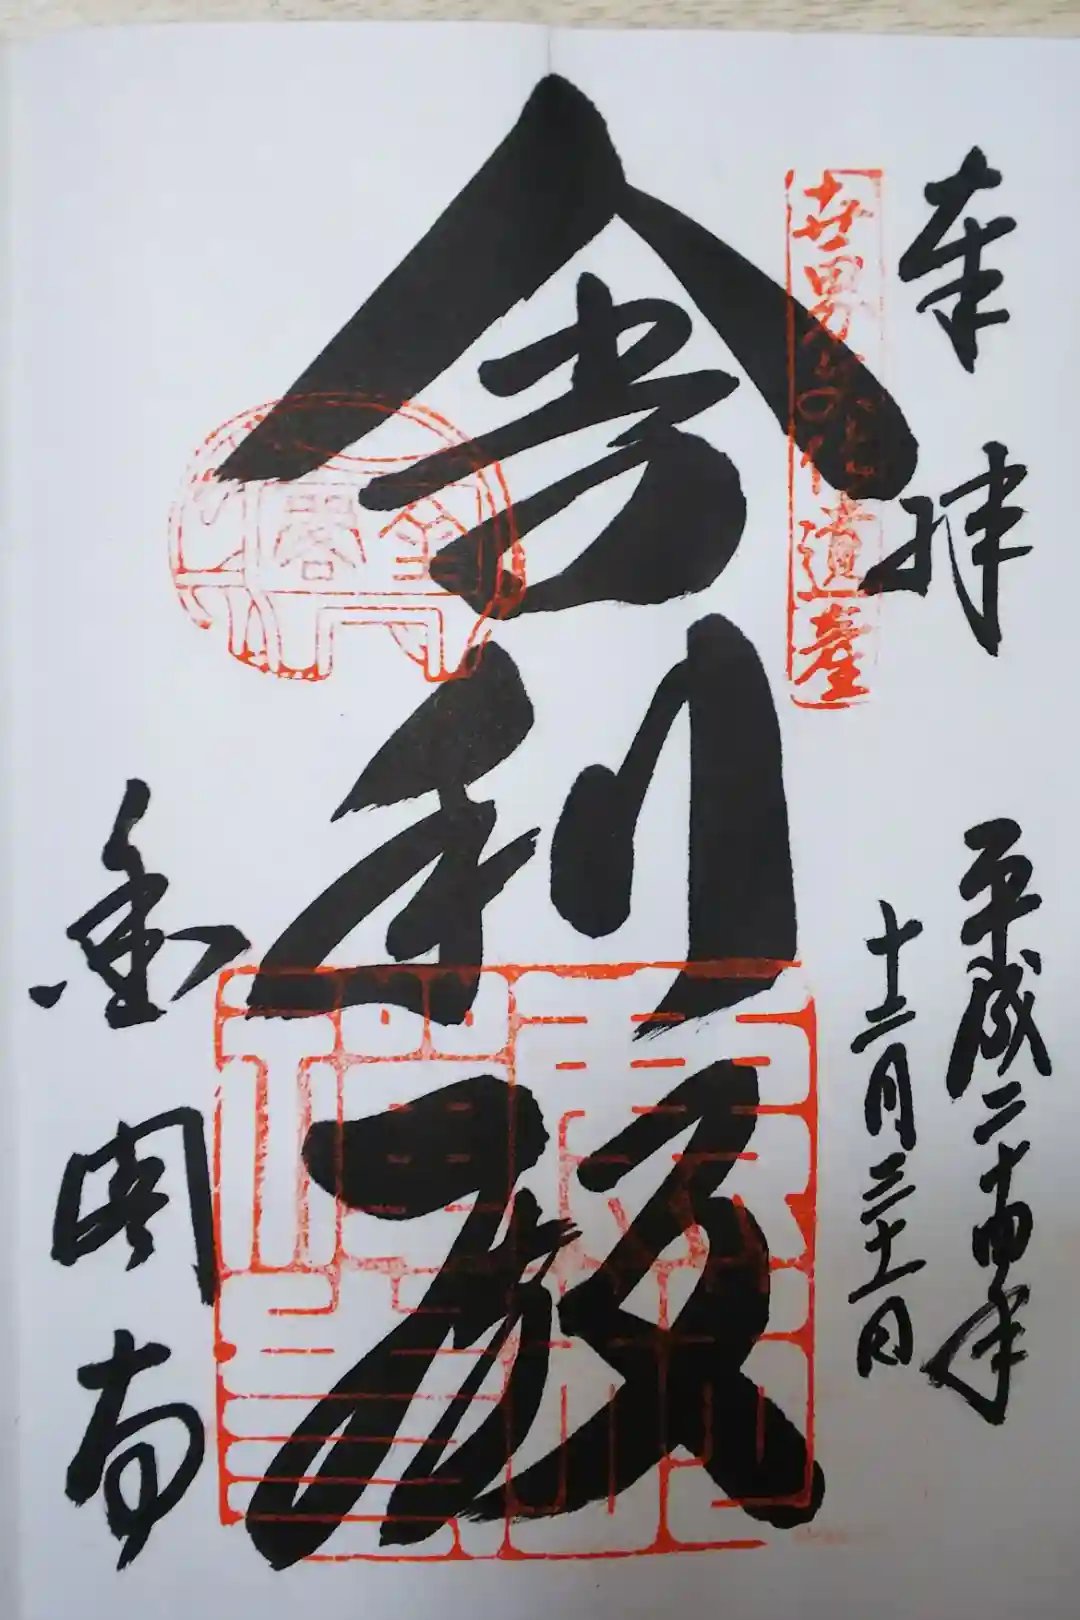 奉拝
平成二十四年
十二月三十一日
世界文化遺産
舎利殿
金閣寺